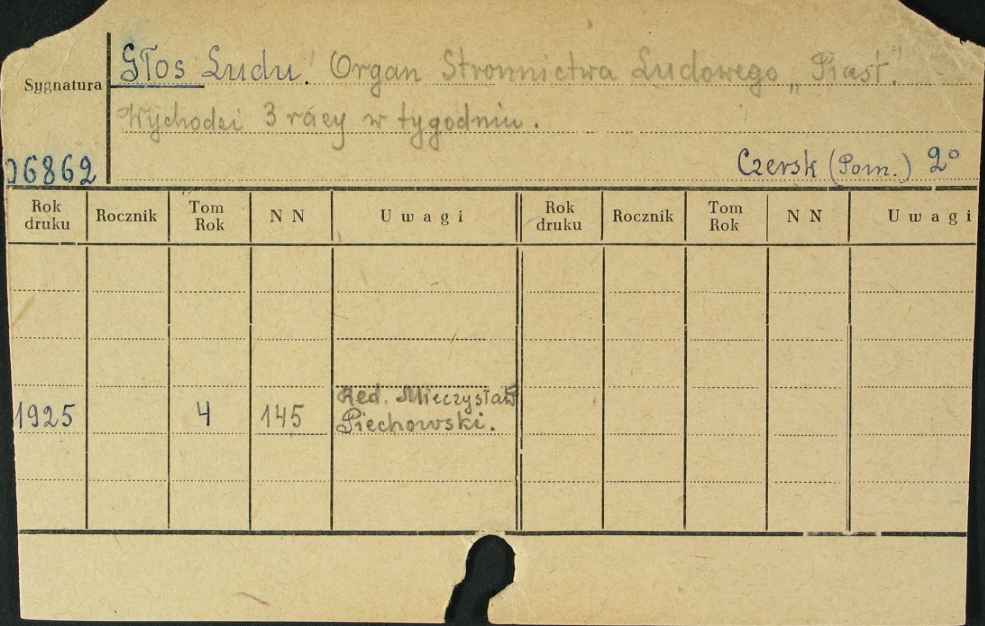 Sygnatura
Głos Ludu. Organ Stronnictwa Ludowego „Piast".
Wychodzi 3 razy w tygodniu.
06862
Czersk (Pom.) 2°
Rok druku Rocznik Tom Rok NN Uwagi Rok druku Rocznik Tom Rok NN Uwagi
1925 4 145 Red. Mieczysław
Piechowski.